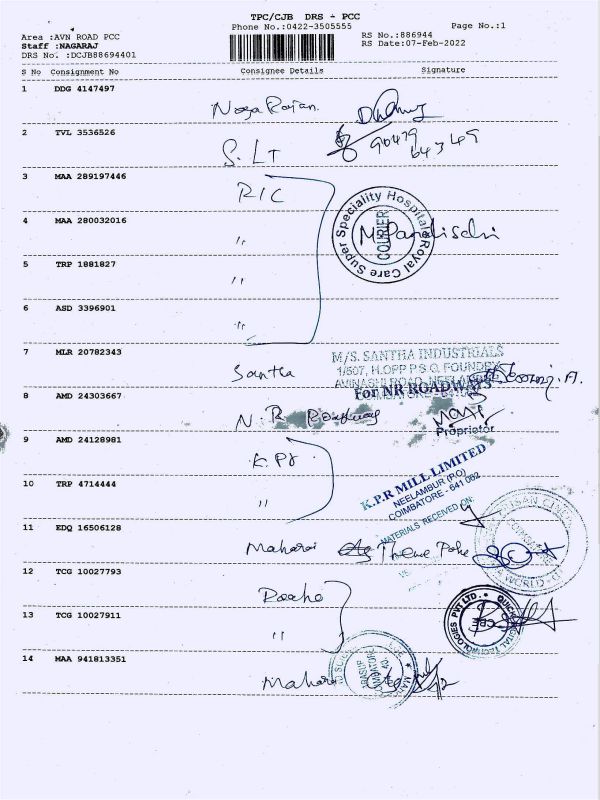 TPC/CJB DRS - PCC
Phone No.:0422-3505555
Page No.:1
Area :AVN ROAD PCC
Staff :NAGARAJ
DRS No. :DCJB88694401
RS No.:886944
RS Date:07-Feb-2022
S No Consignment No Consignee Details Signature
1 DDG 4147497
Naga Rajan.
2 TVL 3536526
S. LT
90479
64349
3 MAA 289197446
RIC
Royal Care Super Speciality Hospital
COURIER
4 MAA 280032016
"
5 TRP 1881827
"
6 ASD 3396901
"
7 MLR 20782343
Santha
M/S. SANTHA INDUSTRIALS
1/507, H.OPP P.S.G. FOUNDRY
AVINASHI ROAD, NEELAMBUR
8 AMD 24303667
For NR ROADWAYS
N. R Roadway
Proprietor
9 AMD 24128981
K. PR
K.P.R MILL LIMITED
NEELAMBUR (PO)
COIMBATORE - 641 062
MATERIALS RECEIVED ON:
10 TRP 4714444
"
11 EDQ 16506128
Maharai Theme
12 TCG 10027793
Roche
13 TCG 10027911
"
14 MAA 941813351
Maharai